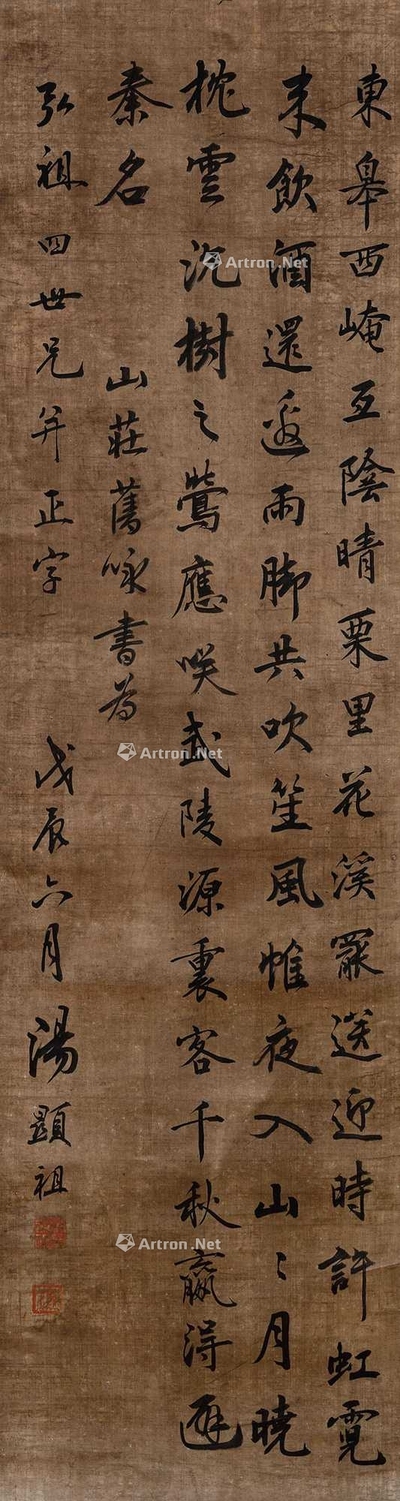 東皋西崦互陰晴栗里花溪罷送迎時許虹霓
来飲酒還邀雨脚共吹笙風帷夜入山〻月曉
枕雲沉樹〻鶯應咲武陵源裏客千秋贏得避
秦名 山莊舊咏書為
弘祖四世兄并正字 戊辰六月湯顯祖
Artron.Net
Artron.Net
Artron.Net